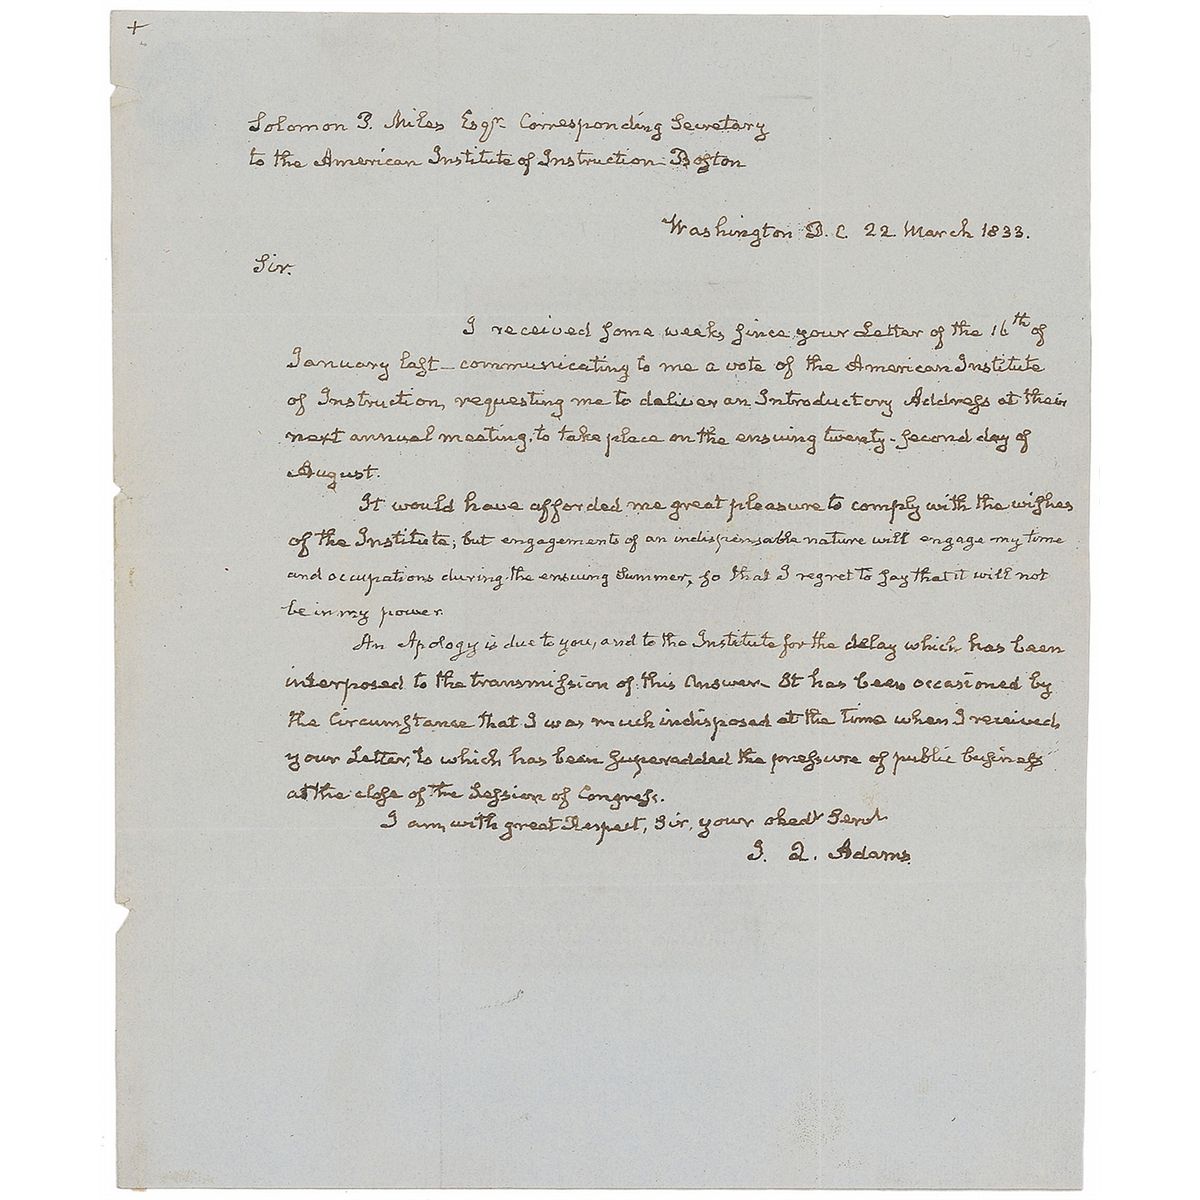 Solomon P. Miles Esqr. Corresponding Secretary
to the American Institute of Instruction - Boston
Washington D. C. 22 March 1833.
Sir.
I received some weeks since your Letter of the 16th of
January last - communicating to me a vote of the American Institute
of Instruction, requesting me to deliver an Introductory Address at their
next annual meeting, to take place on the ensuing twenty-second day of
August.
It would have afforded me great pleasure to comply with the wishes
of the Institute; but engagements of an indispensable nature will engage my time
and occupations during the ensuing Summer, so that I regret to say that it will not
be in my power.
An Apology is due to you, and to the Institute for the delay which has been
interposed to the transmission of this Answer - It has been occasioned by
the Circumstance that I was much indisposed at the time when I received
your Letter, to which has been superadded the pressure of public business
at the close of the Session of Congress.
I am, with great Respect, Sir, your obedt Servt
J. Q. Adams.